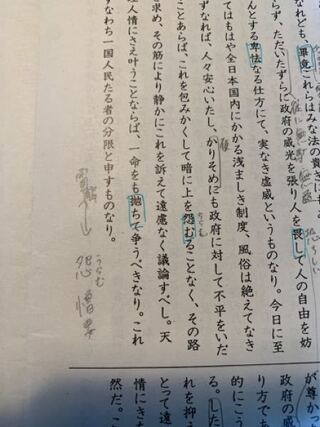 なれども、畢竟これらはみな法の貴きにも
らず、ただいたずらに政府の威光を張り人を畏して人の自由を妨
んとする卑怯なる仕方にて、実なき虚威というものなり。今日に至
てはもはや全日本国内にかかる浅ましき制度、風俗は絶えてなき
ずなれば、人々安心いたし、かりそめにも政府に対して不平をいだ
ことあらば、これを包みかくして暗に上を怨むることなく、その路
求め、その筋により静かにこれを訴えて遠慮なく議論すべし。天
理人情にさえ叶うことならば、一命をも抛ちて争うべきなり。これ
なわち一国人民たる者の分限と申すものなり。
うらむ
怨憎
が尊かっ
政府の威
り方であ
的にこう
る。した
れを抑え
とって遠
情にさた
然だ。こ